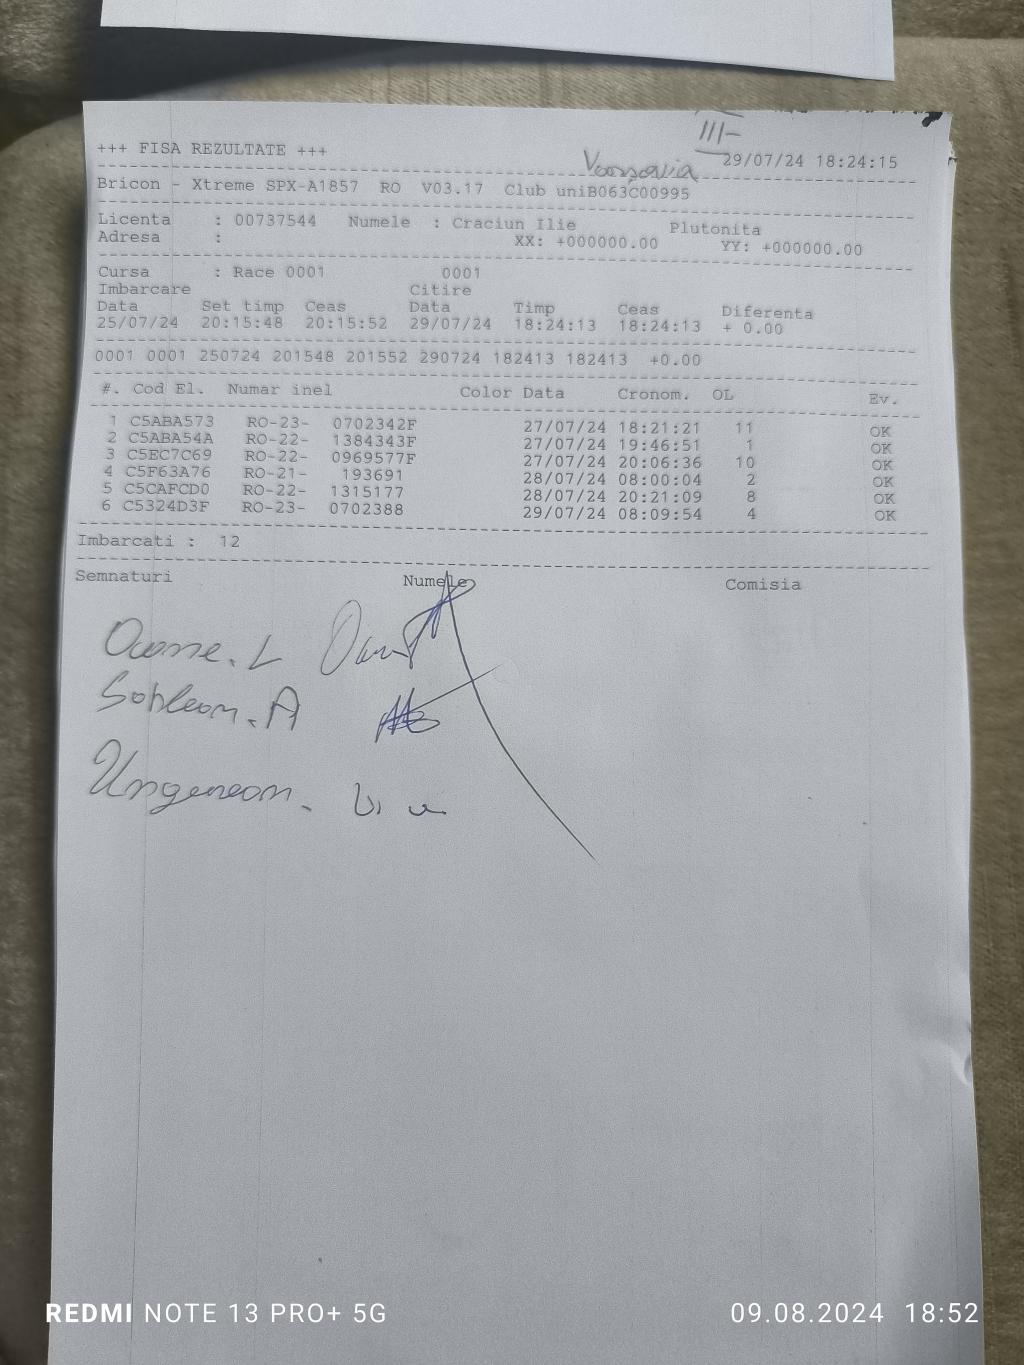 III-
+++ FISA REZULTATE +++ 29/07/24 18:24:15
Bricon - Xtreme SPX-A1857 RO V03.17 Club uniB063C00995
Licenta : 00737544 Numele : Craciun Ilie Plutonita
Adresa : XX: +000000.00 YY: +000000.00
Cursa : Race 0001 0001
Imbarcare Citire
Data Set timp Ceas Data Timp Ceas Diferenta
25/07/24 20:15:48 20:15:52 29/07/24 18:24:13 18:24:13 + 0.00
0001 0001 250724 201548 201552 290724 182413 182413 +0.00
#. Cod El. Numar inel Color Data Cronom. OL Ev.
1 C5ABA573 RO-23- 0702342F 27/07/24 18:21:21 11 OK
2 C5ABA54A RO-22- 1384343F 27/07/24 19:46:51 1 OK
3 C5EC7C69 RO-22- 0969577F 27/07/24 20:06:36 10 OK
4 C5F63A76 RO-21- 193691 28/07/24 08:00:04 2 OK
5 C5CAFCD0 RO-22- 1315177 28/07/24 20:21:09 8 OK
6 C5324D3F RO-23- 0702388 29/07/24 08:09:54 4 OK
Imbarcati : 12
Semnaturi Numele Comisia
REDMI NOTE 13 PRO+ 5G 09.08.2024 18:52